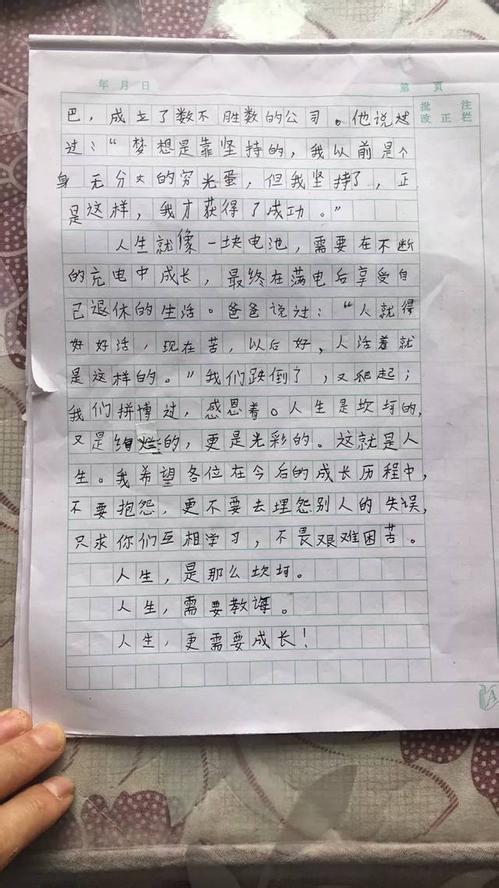 年 月 日
第 頁
批 注
改 正 栏
巴，成立了数不胜数的公司。他说过
过："梦想是靠坚持的，我以前是个
身无分文的穷光蛋，但我坚持了，正
是这样，我才获得了成功。"
人生就像一块电池，需要在不断
的充电中成长，最终在满电后享受自
己退休的生活。爸爸说过："人就得
好好活，现在苦，以后好，人活着就
是这样的。"我们跌倒了，又爬起；
我们拼博过，感恩着。人生是坎坷的，
又是绚烂的，更是光彩的。这就是人
生。我希望各位在今后的成长历程中，
不要抱怨，更不要去埋怨别人的失误，
只求你们互相学习，不畏艰难困苦。
人生，是那么坎坷。
人生，需要教诲。
人生，更需要成长！